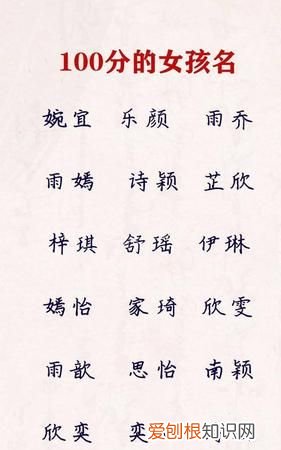 100分的女孩名
婉宜 乐颜 雨乔
雨嫣 诗颖 芷欣
梓琪 舒瑶 伊琳
嫣怡 家琦 欣雯
雨歆 思怡 南颖
欣奕 奕
爱刨根知识网